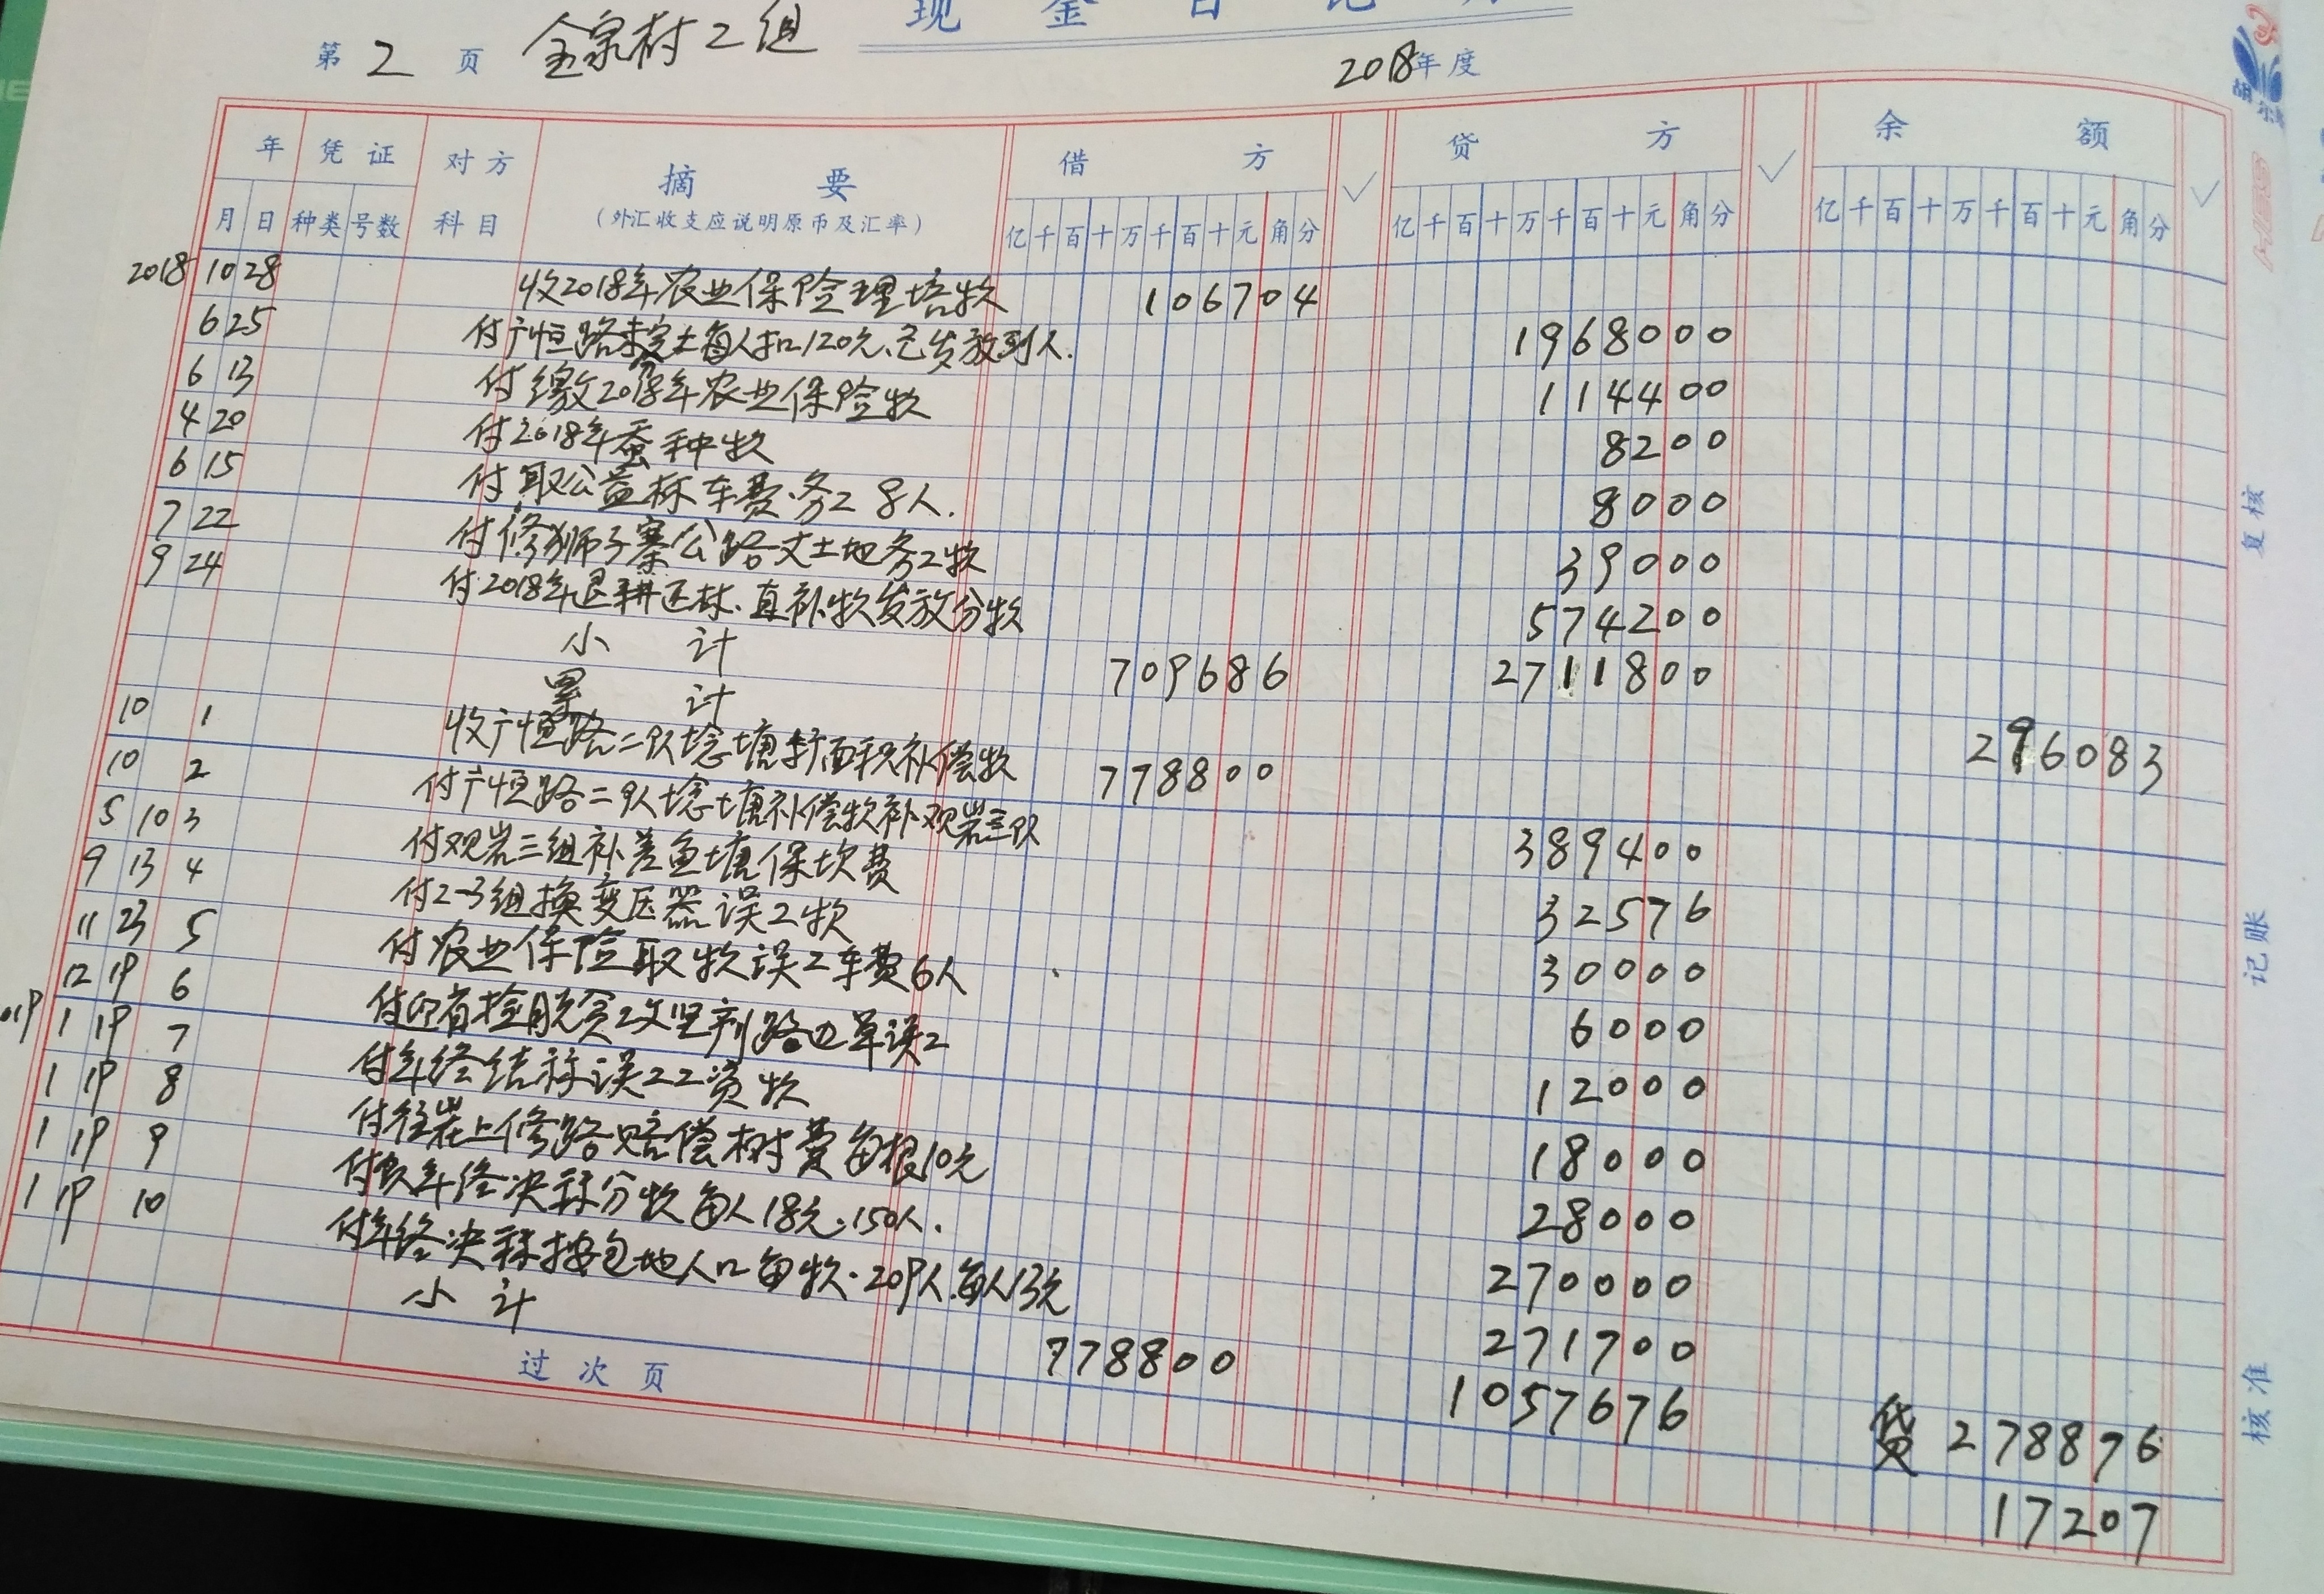 现 金 日 记
第 2 页 金泉村2组
2018年度
年 凭证 对方科目 摘要 借方 ✓ 贷方 ✓ 余额 ✓
月 日 种类 号数 (外汇收支应说明原币及汇率) 亿千百十万千百十元角分 亿千百十万千百十元角分 亿千百十万千百十元角分
2018 10 28 收2018年农业保险理培款 106704
6 25 付广恒路 土每人扣120元、已发放到人. 1968000
6 13 付缴2018年农业保险款 114400
4 20 付2018年蚕种款 8200
6 15 付取公益林车费.务2 8人. 8000
7 22 付修狮子寨公路丈土地务工款 39000
9 24 付2018年退耕还林.直补款发放分款 574200
小计 709686 2711800
累计 296083
10 1 收广恒路二队埝塘扩面积补偿款 778800
10 2 付广恒路二队埝塘补偿款补观岩三队 389400
5 10 3 付观岩三组补差鱼塘保坎费 32576
9 13 4 付2-3组换变压器误工款 30000
11 23 5 付农业保险取款误工车费6人 6000
12 19 6 付迎省检脱贫 路边草误工 12000
019 1 19 7 付年终结 误工工资款 18000
1 19 8 付往岩上修路赔偿树费每根10元 28000
1 19 9 付 年终决 分款每人18元.150人. 270000
1 19 10 付年终决 按包地人口 款.209人.每人13元 271700
小计 778800 1057676 贷 278876
过次页 17207
复核
记账
核准